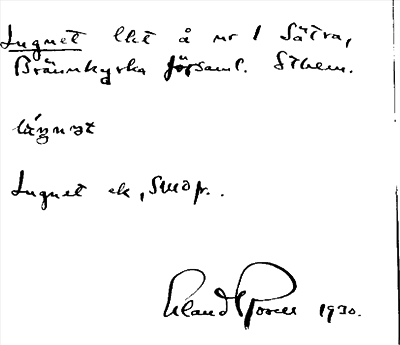 Lugnet lht å nr 1 Sätra,
Brännkyrka församl. Sthlm.
Lugnet ek, Smop.
Erland Rosell 1930.